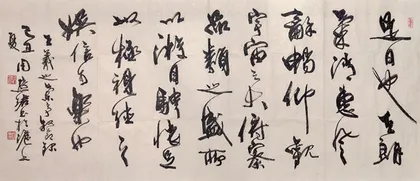 是日也天朗
氣清惠風
龢暢仰觀
宇宙之大俯察
品類之盛所
以遊目騁懷足
以極視聽之
娛信可樂也
王羲之
夏